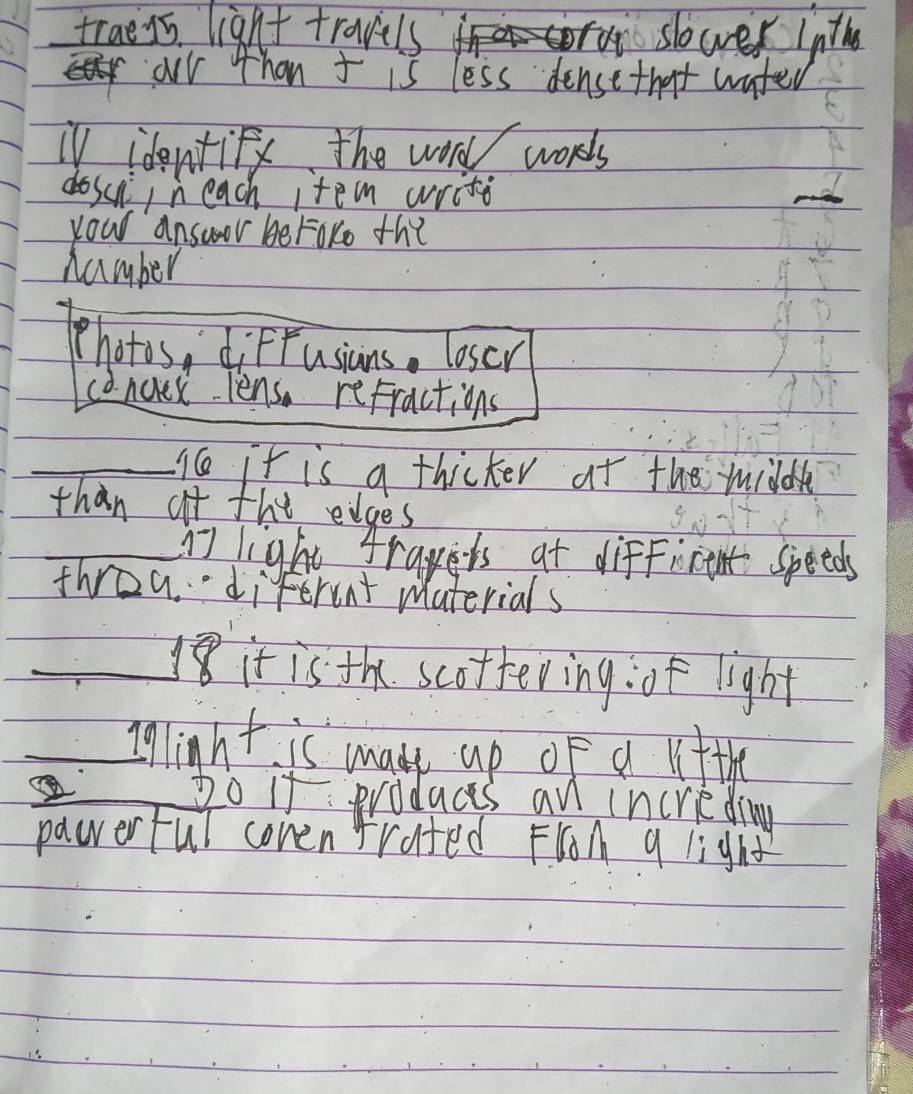 trae 15. light travels slower in the
air than t is less dense that water
iv identify the word/words
descri, in each item write
your answer before the
number
Photos, diffusians. laser
convex lens. refractions
______16 it is a thicker at the middle
than at the edges
______17 light travels at different speeds
throu. diferent materials
______18 it is the scattering of light
______19 light is made up of a little
______20 it produces an incrediny
pawerful conen trated from a light